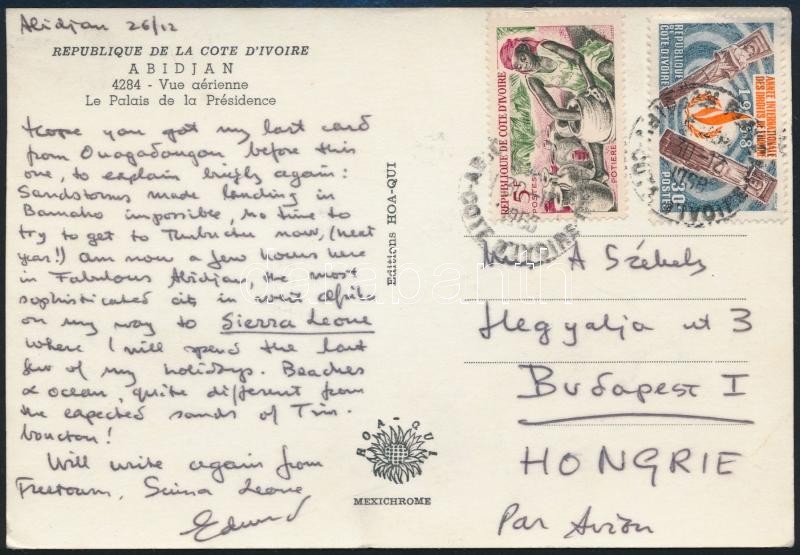 Abidjan 26/12
REPUBLIQUE DE LA COTE D'IVOIRE
ABIDJAN
4284 - Vue aérienne
Le Palais de la Présidence
Hope you got my last card
from Ouagadougou before this
one, to explain briefly again:
Sandstorms made landing in
Bamako impossible, no time to
try to get to Timbuctu now, (next
year!) Am now a few hours here
in Fabulous Abidjan, the most
sophisticated city in Africa
on my way to Sierra Leone
where I will spend the last
few of my holidays. Beaches
& ocean, quite different from
the expected sands of Tim-
bouctou!
Will write again from
Freetown, Sierra Leone
Edward
Editions HOA-QUI
HOA-QUI
MEXICHROME
REPUBLIQUE DE COTE D'IVOIRE
5F
POSTES
POTIERE
REPUBLIQUE DE COTE D'IVOIRE
ANNEE INTERNATIONALE
DES DROITS DE L'HOMME
1968
30F
POSTES
A Székely
Hegyalja ut 3
Budapest I
HONGRIE
Par Avion
darabanth